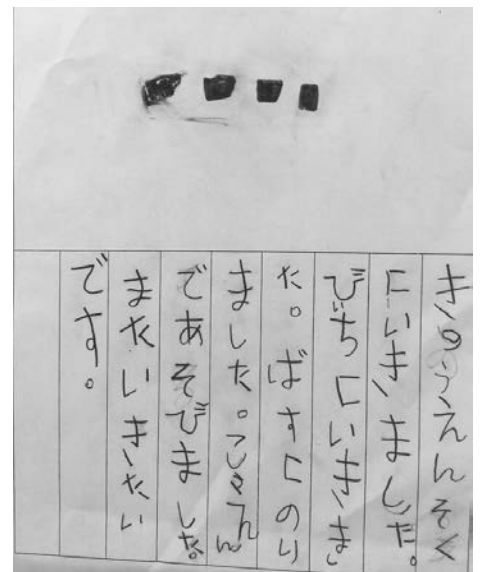 きのうえんそく
にいきました。
びちにいきま
た。ばすにのり
ました。こうえん
であそびました。
またいきたい
です。